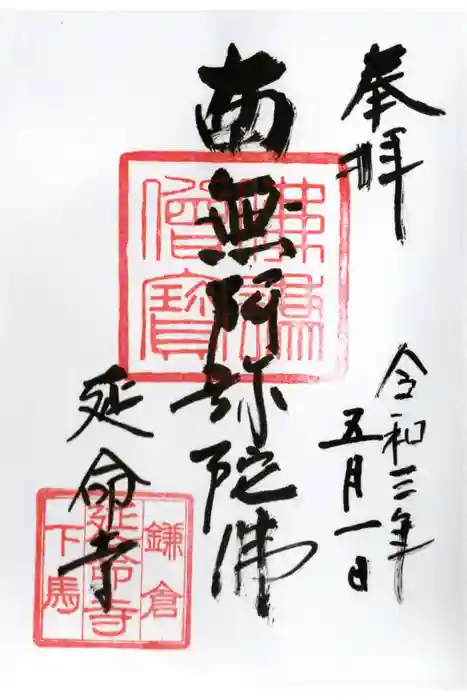 奉拝
令和三年
五月一日
南無阿弥陀佛
佛法
僧寶
延命寺
鎌倉
延命寺
下馬